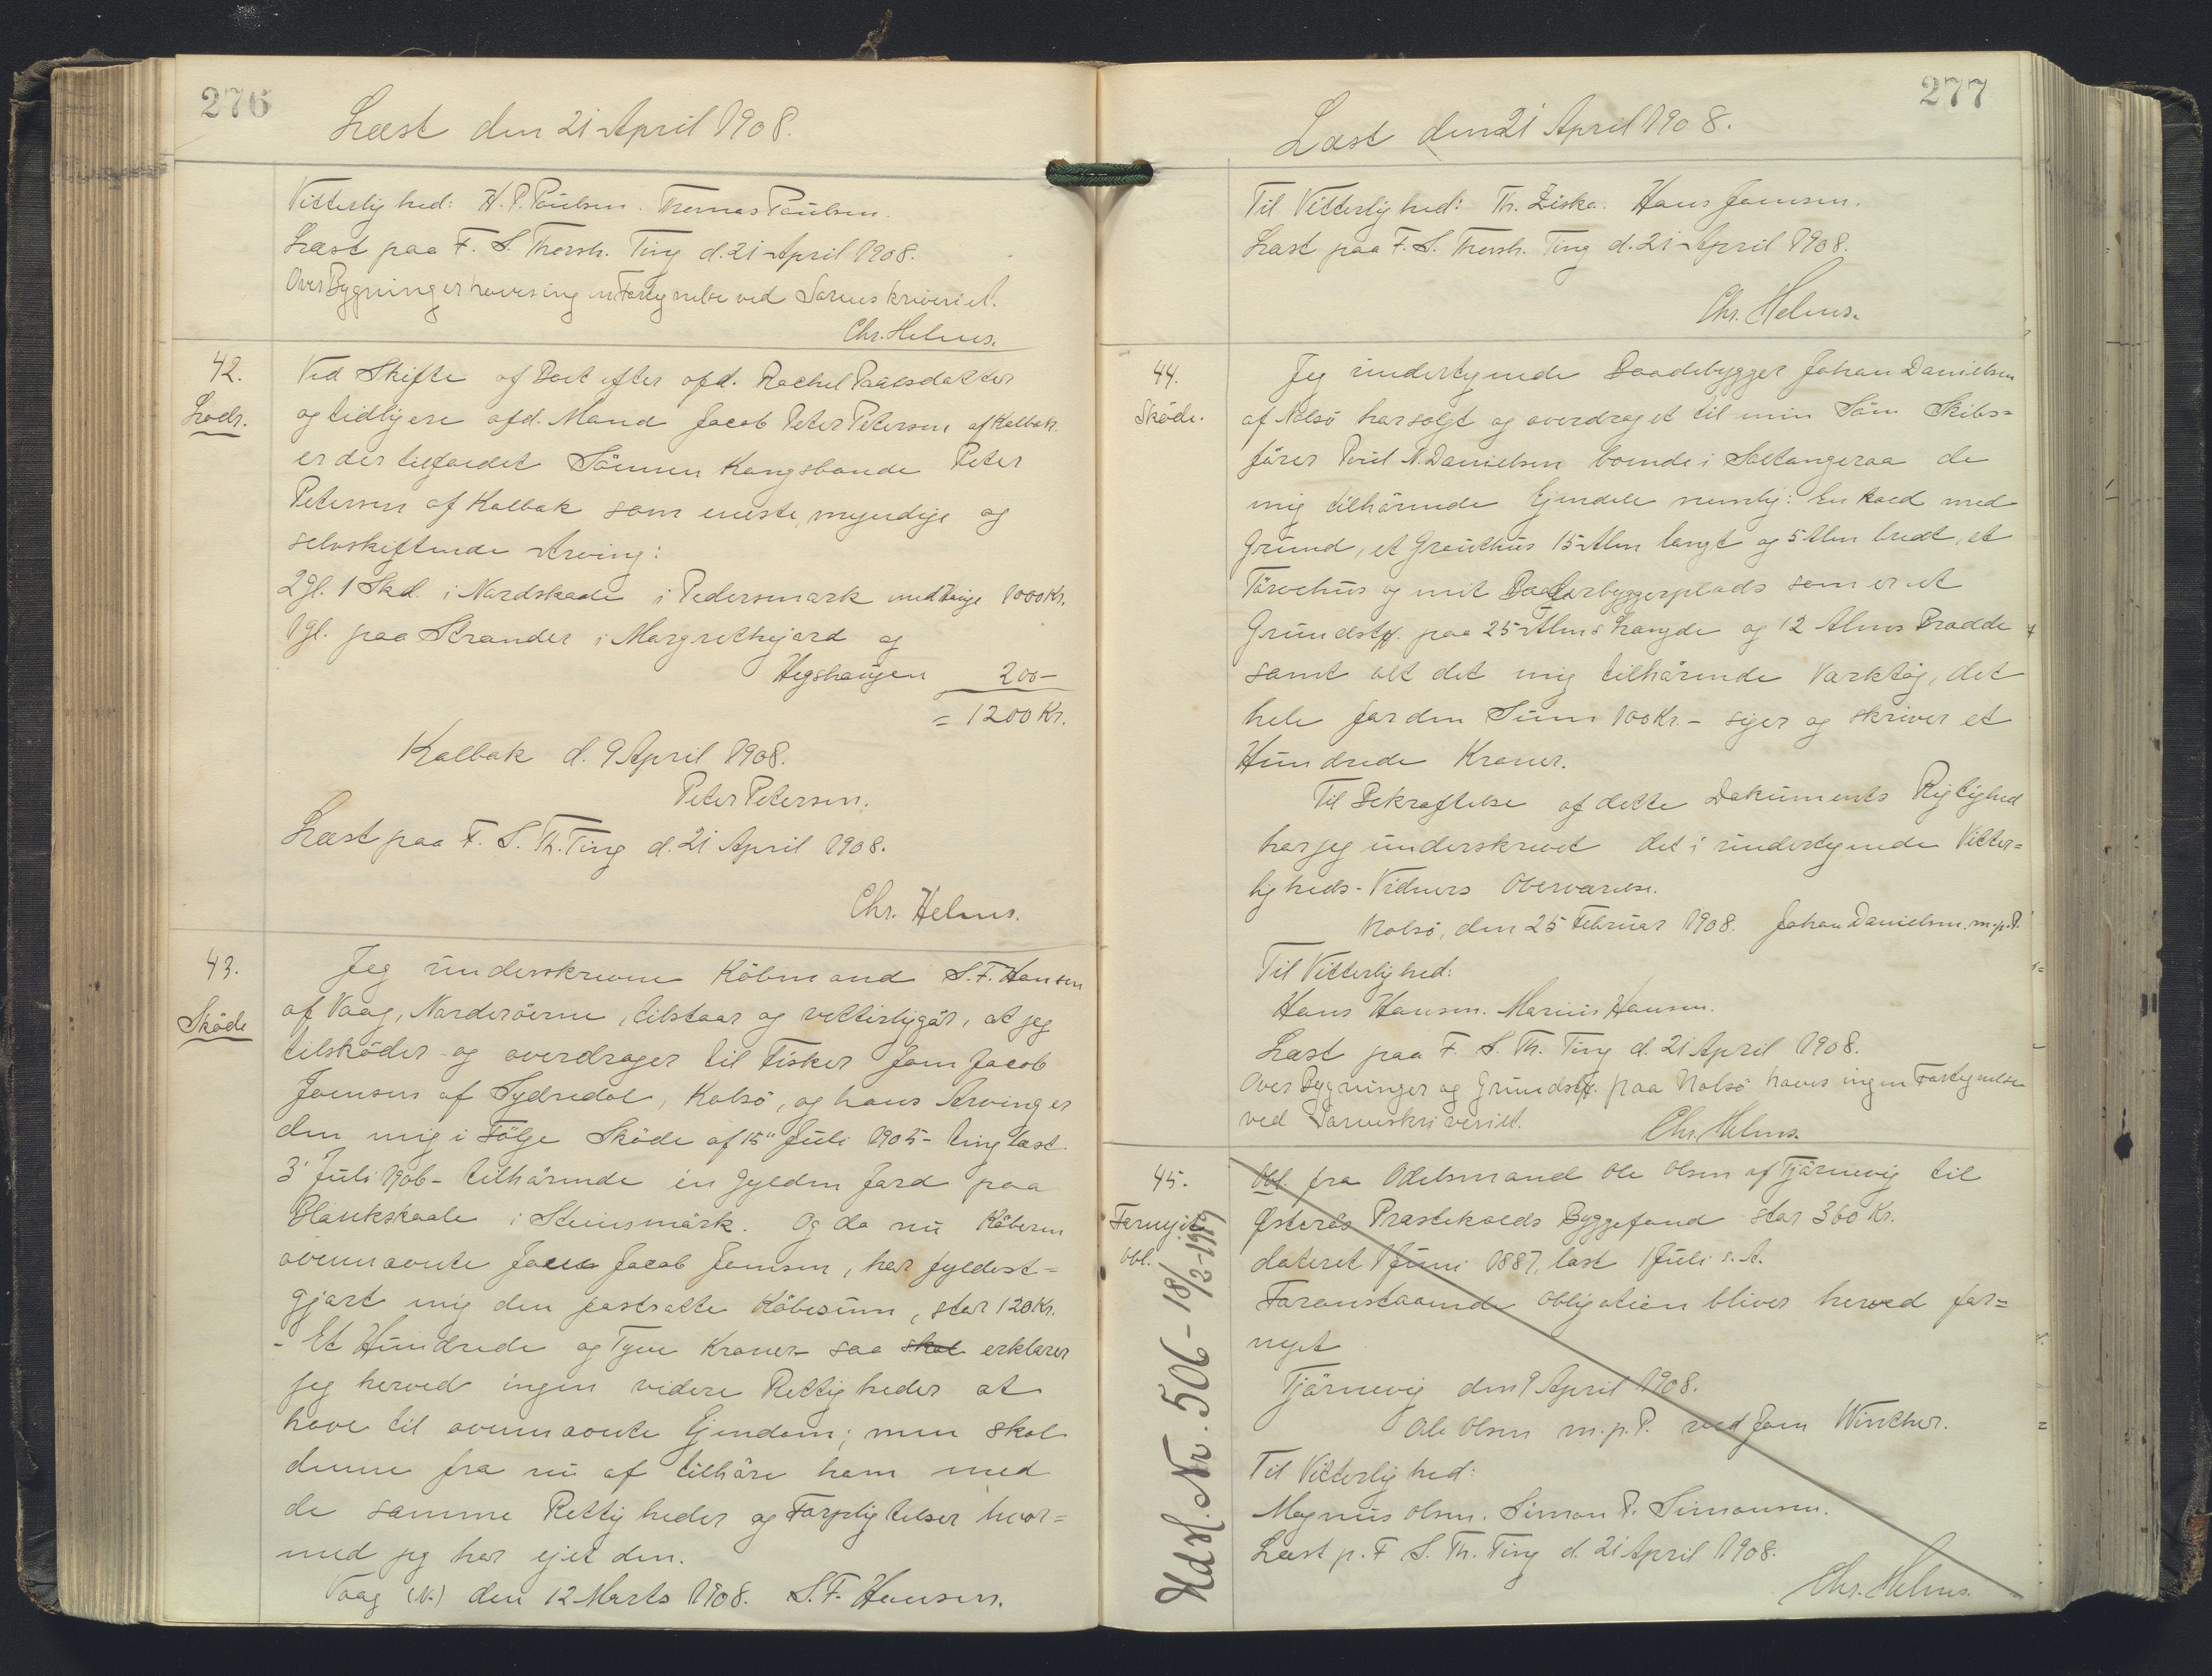 276
Læst den 21 April 1908.
Vitterlighed: H. P. Poulsen. Thomas Poulsen.
Læst paa F. S. Thorsh. Ting d. 21 April 1908.
Over Bygninger haves ingen Fortegnelse ved Sorenskriveriet.
Chr. Helms.
42.
Lods.
Ved Skifte af Boet efter afd. Rachel Poulsdatter
og tidligere afd. Mand Jacob Peter Petersen af Kalbak
er der tilfaldet Sönnen Kongsbonde Peter
Petersen af Kalbak som eneste, myndige og
selvskiftende Arving:
2 gl. 1 Skd. i Nordskaale i Pedersmark med Hauge 1000 Kr.
1 gl. paa Strander i Margrethejord og
Hegshaugen 200 -
= 1200 Kr.
Kalbak d. 9 April 1908.
Peter Petersen.
Læst paa F. S. Th. Ting d. 21 April 1908.
Chr. Helms.
43.
Sköde
Jeg underskrevne Köbmand S. F. Hansen
af Vaag, Norderöerne, tilstaar og vitterliggör, at jeg
tilsköder og overdrager til Fisker Joen Jacob
Joensen af Sydredal, Kalsö, og hans Arvinger
den mig i Fölge Sköde af 15" Juli 1905 - tinglæst
3' Juli 1906 - tilhörende en Gylden Jord paa
Blankskaale i Steinsmørk. Og da nu Köberen
ovennævnte Joen Jacob Joensen, har fyldest=
gjort mig den fastsatte Köbesum, stor 120 Kr.
- Et Hundrede og Tyve Kroner - saa skal erklærer
jeg herved ingen videre Rettigheder at
have til ovennævnte Ejendom; men skal
denne fra nu af tilhöre ham med
de samme Rettigheder og Forpligtelser hvor=
med jeg har ejet den.
Vaag (N.) den 12 Marts 1908. S. F. Hansen.
277
Læst den 21 April 1908.
Til Vitterlighed: Th. Ziska. Hans Joensen.
Læst paa F. S. Thorsh. Ting d. 21 April 1908.
Chr. Helms.
44.
Sköde.
Jeg undertegnede Baadebygger Johan Danielsen
af Nolsö har solgt og overdraget til min Sön Skibs=
förer Poul N. Danielsen boende i Saltangeraa de
mig tilhörende Ejendele nemlig: En Kald med
Grund, et Grauthus 15 Alen langt og 5 Alen bredt, et
Törvehus og mit Baadebyggerplads som er et
Grundst. paa 25 Alens Længde og 12 Alens Bredde
samt alt det mig tilhörende Værktöj, det
hele for den Sum 100 Kr. - siger og skriver et
Hundrede Kroner.
Til Bekræftelse af dette Dokuments Rigtighed
har jeg underskrevet det i undertegnede Vitter=
ligheds-Vidners Overværelse.
Nolsö, den 25 Februar 1908. Johan Danielsen. m.p.P.
Til Vitterlighed:
Hans Hansen. Marius Hansen.
Læst paa F. S. Th. Ting d. 21 April 1908.
Over Bygninger og Grundst. paa Nolsö haves ingen Fortegnelse
ved Sorenskriveriet. Chr. Helms.
45.
Fornyet
Obl.
Udsl. Nr. 506 - 18/2 - 1919
Obl. fra Odelsmand Ole Olsen af Tjörnevig til
Österös Præstekalds Byggefond stor 360 Kr.
dateret 1 Juni 1887, læst 1 Juli s. A.
Foranstaaende Obligation bliver herved for=
nyet
Tjörnevig den 9 April 1908.
Ole Olsen m.p.P. ved Joen Winther.
Til Vitterlighed:
Magnus Olsen. Simon P. Simonsen.
Læst p. F. S. Th. Ting d. 21 April 1908.
Chr. Helms.